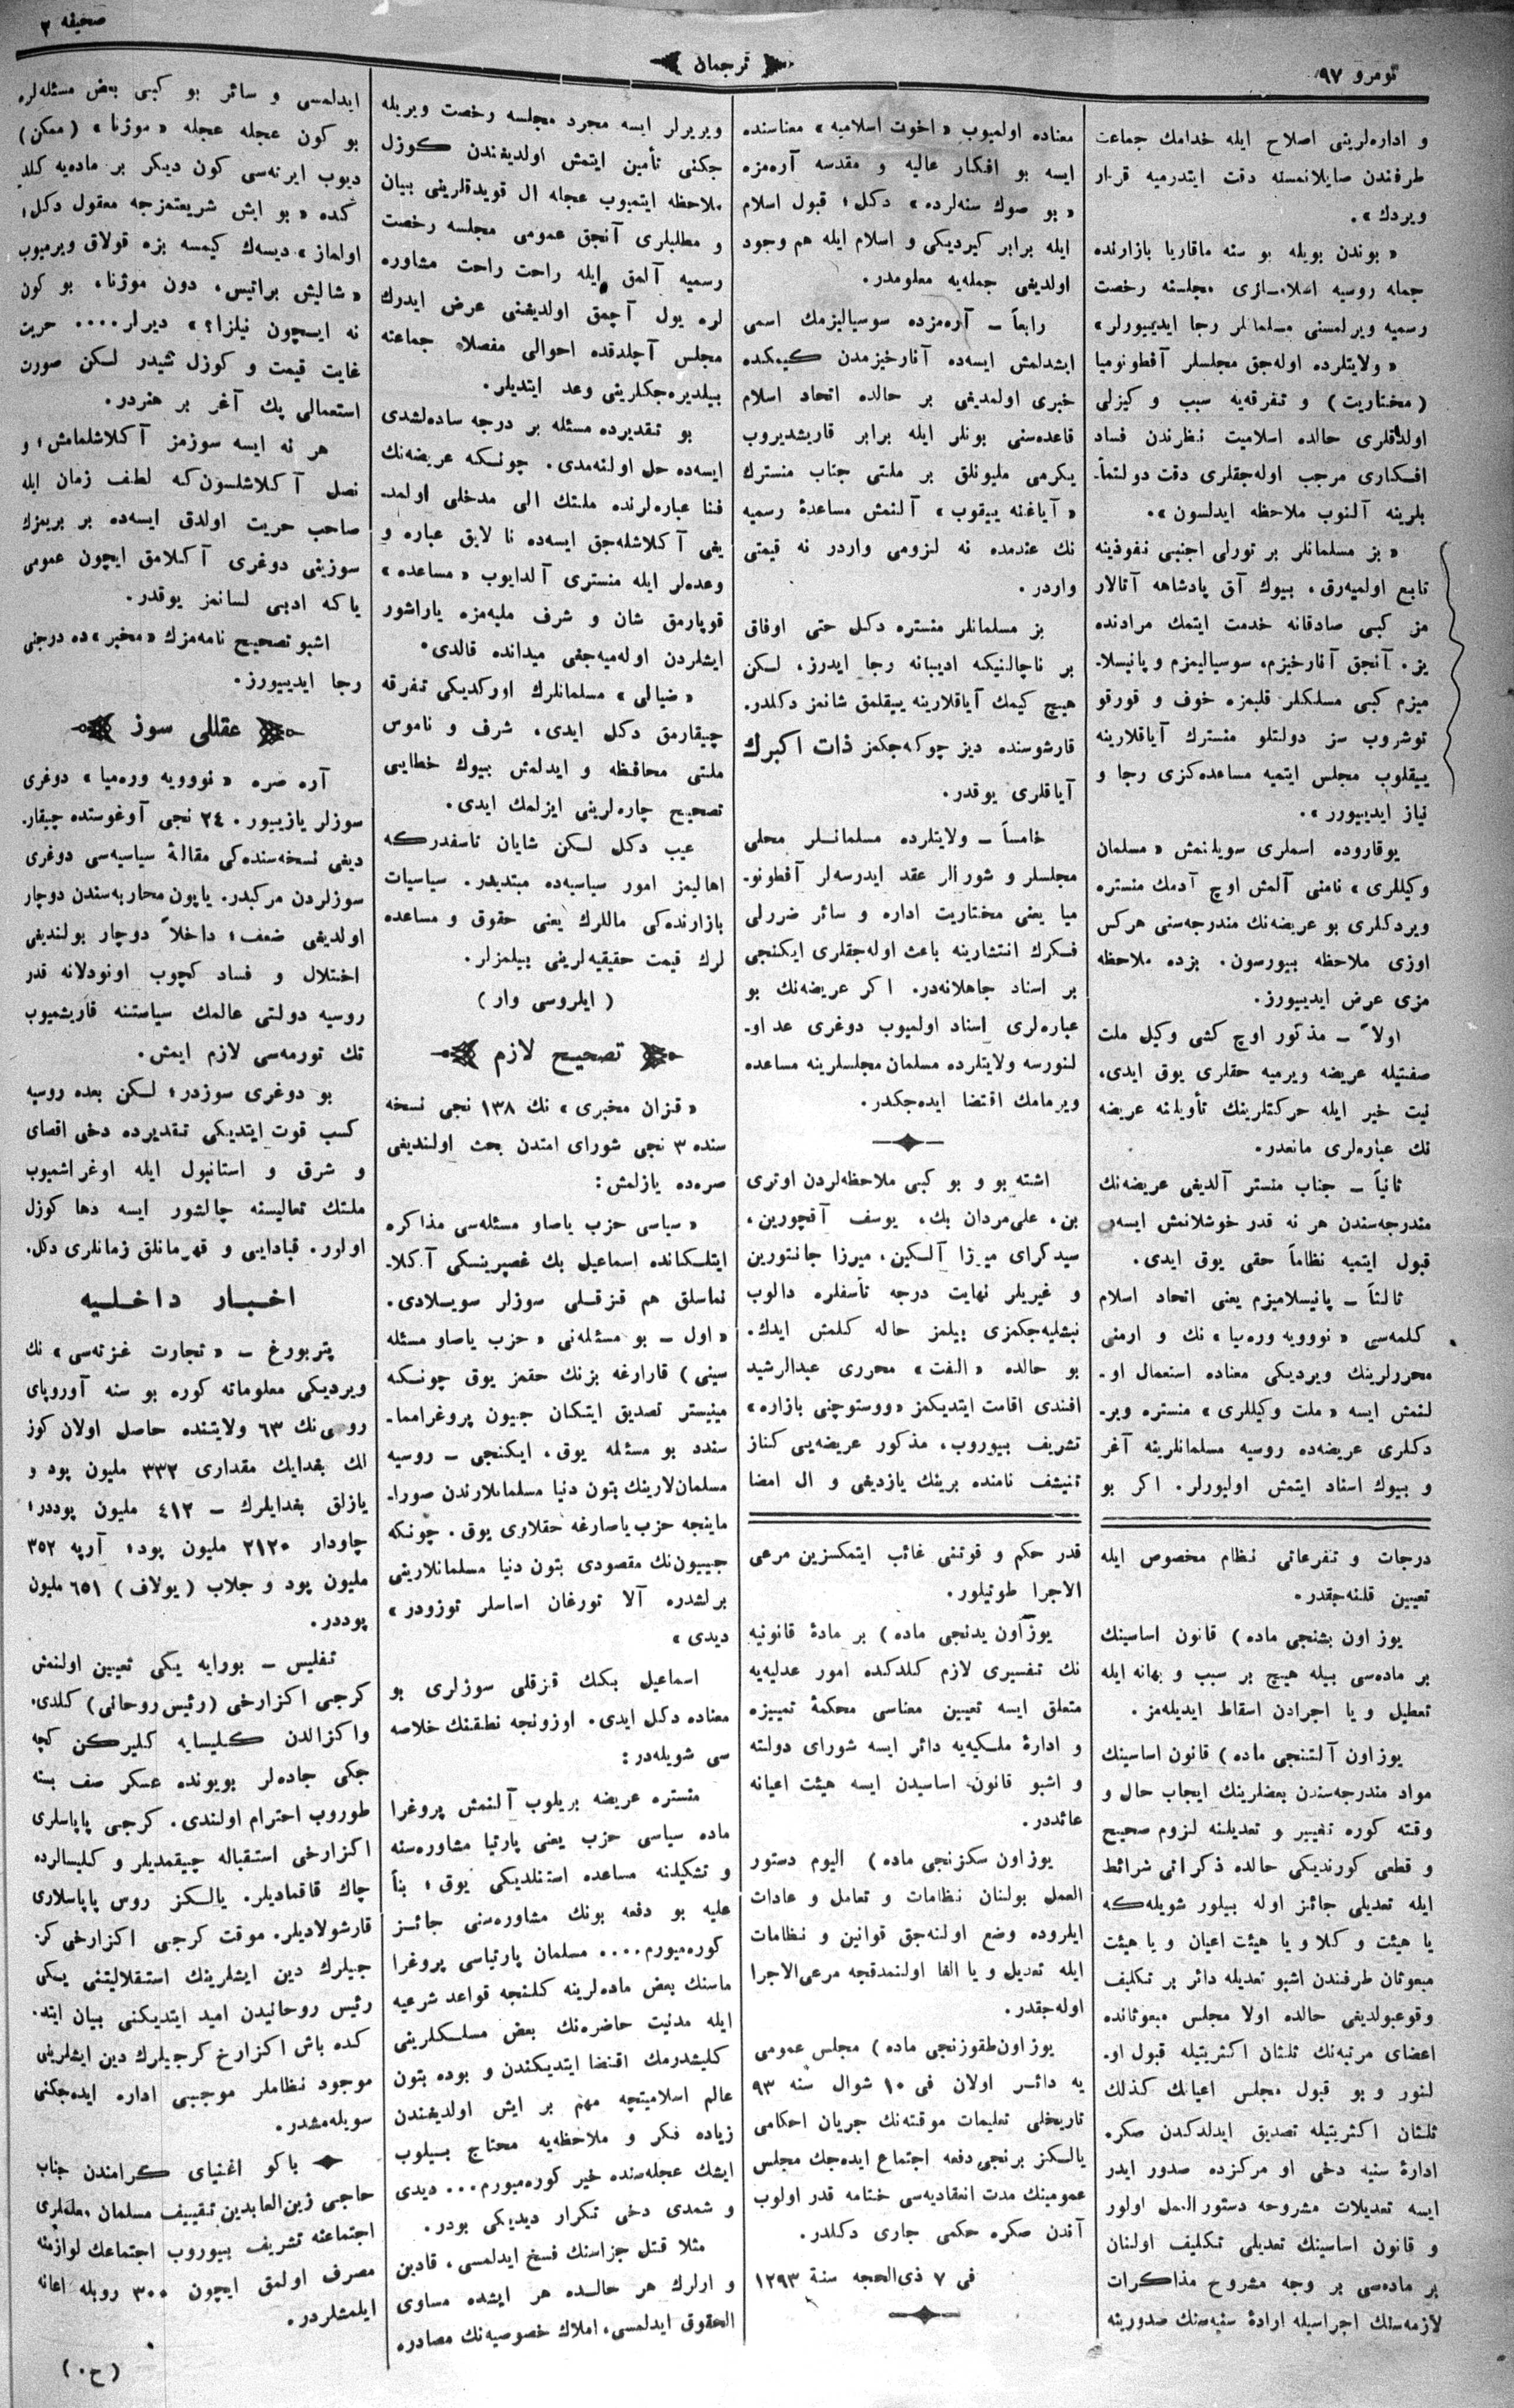 نومرو ٩٧
ترجمان
صحیفه ٢
و اداره‌لرینی اصلاح ایله خدامك جماعت
طرفندن صایلانمسنه دقت ایتدرمیه قرار
ویردك».
« بوندن بویله بو سنه ماقاریا بازارنده
جمله روسیه اسلاملری مجلسنه رخصت
رسمیه ویرلمسنی مسلمانلر رجا ایدییورلر»
« ولایتلرده اوله‌جق مجلسلر آفطونومیا
(مختاریت) و تفرقه‌یه سبب و كیزلی
اولدقلری حالده اسلامیت نظرندن فساد
افكاری مرجب اوله‌جقلری دقت دولتمآ-
بلرینه آلنوب ملاحظه ایدلسون».
« بز مسلمانلر بر تورلی اجنبی نفوذینه
تابع اولمیه‌رق، بیوك آق پادشاهه آتالار
مز كبی صادقانه خدمت ایتمك مرادنده
یز. آنجق آنارخیزم، سوسیالیزم و پانیسلا-
میزم كبی مسلكلر قلبمزه خوف و قورقو
توشروب سز دولتلو منسترك آیاقلارینه
ییقلوب مجلس ایتمیه مساعده‌كزی رجا و
نیاز ایدییورر».
یوقاروده اسملری سویلنمش «مسلمان
وكیللری» نامنی آلمش اوچ آدمك منستره
ویردكلری بو عریضه‌نك مندرجه‌سنی هركس
اوزی ملاحظه بییورسون. بزده ملاحظه
مزی عرض ایدییورز.
اولاً – مذكور اوچ كشی وكیل ملت
صفتیله عریضه ویرمیه حقلری یوق ایدی،
نیت خیر ایله حركتلرینك تأویلنه عریضه
نك عباره‌لری مانعدر.
ثانیاً – جناب منستر آلدیغی عریضه‌نك
مندرجه‌سندن هر نه قدر خوشلانمش ایسه‌ده
قبول ایتمیه نظاماً حقی یوق ایدی.
ثالثاً – پانیسلامیزم یعنی اتحاد اسلام
كلمه‌سی «نوویه وره‌میا» نك و ارمنی
محررلرینك ویردیكی معناده استعمال او-
لنمش ایسه «ملت وكیللری» منستره ویر-
دكلری عریضه‌ده روسیه مسلمانلرینه آغر
و بیوك اسناد ایتمش اولیورلر. اكر بو
درجات و تفرعاتی نظام مخصوص ایله
تعیین قلنه‌جقدر.
یوز اون بشنجی ماده) قانون اساسینك
بر ماده‌سی بیله هیچ بر سبب و بهانه ایله
تعطیل و یا اجرادن اسقاط ایدیله‌مز.
یوز اون آلتنجی ماده) قانون اساسینك
مواد مندرجه‌سندن بعضلرینك ایجاب حال و
وقته كوره تغییر و تعدیلنه لزوم صحیح
و قطعی كورندیكی حالده ذكر آتی شرائط
ایله تعدیلی جائز اوله بیلور شویله‌كه
یا هیئت وكلا و یا هیئت اعیان و یا هیئت
مبعوثان طرفندن اشبو تعدیله دائر بر تكلیف
وقوعبولدیغی حالده اولا مجلس مبعوثانده
اعضای مرتبه‌نك ثلثان اكثریتیله قبول او-
لنور و بو قبول مجلس اعیانك كذلك
ثلثان اكثریتیله تصدیق ایدلدكدن صكره
ادارهٔ سنیه دخی او مركزده صدور ایدر
ایسه تعدیلات مشروحه دستور العمل اولور
و قانون اساسینك تعدیلی تكلیف اولنان
بر ماده‌سی بر وجه مشروح مذاكرات
لازمه‌سنك اجراسیله ارادهٔ سنیه‌سنك صدورینه
معناده اولمیوب «اخوت اسلامیه» معناسنده
ایسه بو افكار عالیه و مقدسه آره‌مزه
«بو صوك سنه‌لرده» دكل؛ قبول اسلام
ایله برابر كیردیكی و اسلام ایله هم وجود
اولدیغی جمله‌یه معلومدر.
رابعاً – آره‌مزده سوسیالیزمك اسمی
ایشدلمش ایسه‌ده آنارخیزمدن كیمكده
خبری اولمدیغی بر حالده اتحاد اسلام
قاعده‌سنی بونلر ایله برابر قاریشدیروب
یكرمی ملیونلق بر ملتی جناب منسترك
«آیاغنه ییقوب» آلنمش مساعدهٔ رسمیه
نك عندمده نه لزومی واردر نه قیمتی
واردر.
بز مسلمانلر منستره دكل حتی اوفاق
بر ناچالنیكه ادیبانه رجا ایدرز، لكن
هیچ كیمك آیاقلارینه ییقلمق شانمز دكلدر.
قارشوسنده دیز چوكه‌جكمز ذات اكبرك
آیاقلری یوقدر.
خامساً – ولایتلرده مسلمانلر محلی
مجلسلر و شورالر عقد ایدرسه‌لر آفطونو-
میا یعنی مختاریت اداره و سائر ضررلی
فكرك انتشارینه باعث اوله‌جقلری ایكنجی
بر اسناد جاهلانه‌در. اكر عریضه‌نك بو
عباره‌لری اسناد اولمیوب دوغری عد او-
لنورسه ولایتلرده مسلمان مجلسلرینه مساعده
ویرمامك اقتضا ایده‌جكدر.
اشته بو و بو كبی ملاحظه‌لردن اوتری
بن، علی‌مردان بك، یوسف آقچورین،
سیدكرای میرزا آلكین، میرزا جانتورین
و غیریلر نهایت درجه تأسفلره دالوب
نیشلیه‌جكمزی بیلمز حاله كلمش ایدك.
بو حالده «الفت» محرری عبدالرشید
افندی اقامت ایتدیكمز «ووستوچنی بازاره»
تشریف بییوروب، مذكور عریضه‌یی كناز
تنیشف نامنده برینك یازدیغی و ال امضا
قدر حكم و قوتنی غائب ایتمكسزین مرعی
الاجرا طوتیلور.
یوز اون یدنجی ماده) بر مادهٔ قانونیه
نك تفسیری لازم كلدكده امور عدلیه‌یه
متعلق ایسه تعیین معناسی محكمهٔ تمییزه
و ادارهٔ ملكیه‌یه دائر ایسه شورای دولته
و اشبو قانون اساسیدن ایسه هیئت اعیانه
عائددر.
یوز اون سكزنجی ماده) الیوم دستور
العمل بولنان نظامات و تعامل و عادات
ایلروده وضع اولنه‌جق قوانین و نظامات
ایله تعدیل و یا الغا اولنمدقجه مرعی‌الاجرا
اوله‌جقدر.
یوز اون طقوزنجی ماده) مجلس عمومی
یه دائر اولان فی ١٠ شوال سنه ٩٣
تاریخلی تعلیمات موقته‌نك جریان احكامی
یالكز برنجی دفعه اجتماع ایده‌جك مجلس
عمومینك مدت انعقادیه‌سی ختامه قدر اولوب
آندن صكره حكمی جاری دكلدر.
فی ٧ ذی‌الحجه سنة ١٢٩٣
ویریرلر ایسه مجرد مجلسه رخصت ویریله
جكنی تأمین ایتمش اولدیغندن كوزل
ملاحظه ایتمیوب عجله ال قویدقلرینی بیان
و مطلبلری آنجق عمومی مجلسه رخصت
رسمیه آلمق ایله راحت راحت مشاوره
لره یول آچمق اولدیغنی عرض ایدرك
مجلس آچلدقده احوالی مفصلا جماعته
بیلدیره‌جكلرینی وعد ایتدیلر.
بو تقدیرده مسئله بر درجه ساده‌لشدی
ایسه‌ده حل اولنه‌مدی. چونكه عریضه‌نك
فنا عباره‌لرنده ملتك الی مدخلی اولمد-
یغی آكلاشله‌جق ایسه‌ده نا لایق عباره و
وعده‌لر ایله منستری آلدایوب «مساعده»
قوپارمق شان و شرف ملیه‌مزه یاراشور
ایشلردن اوله‌میه‌جغی میدانده قالدی.
«ضیالی» مسلمانلرك اوركدیكی تفرقه
چیقارمق دكل ایدی، شرف و ناموس
ملتی محافظه و ایدلمش بیوك خطایی
تصحیح چاره‌لرینی ایزلمك ایدی.
عیب دكل لكن شایان تاسفدركه
اهالیمز امور سیاسیه‌ده مبتدیدر. سیاسیات
بازارنده‌كی ماللرك یعنی حقوق و مساعده
لرك قیمت حقیقیه‌لرینی بیلمزلر.
(ایلروسی وار)
تصحیح لازم
«قزان مخبری» نك ١٣٨ نجی نسخه
سنده ٣ نجی شورای امتدن بحث اولندیغی
صره‌ده یازلمش:
«سیاسی حزب یاصاو مسئله‌سی مذاكره
ایتلكانده اسماعیل بك غصپرینسكی آكلا-
نماسلق هم قزقلی سوزلر سویلادی.
«اول – بو مسئله‌نی «حزب یاصاو مسئله
سینی) قارارغه بزنك حقمز یوق چونكه
مینیستر تصدیق ایتكان جیون پروغراما-
سنده بو مسئله یوق، ایكنجی – روسیه
مسلمان‌لارینك بتون دنیا مسلمانلارندن صورا-
ماینجه حزب یاصارغه حقلاری یوق. چونكه
جییون‌نك مقصودی بتون دنیا مسلمانلارینی
برلشدره آلا تورغان اساسلر توزودر»
دیدی»
اسماعیل بكك قزقلی سوزلری بو
معناده دكل ایدی. اوزونجه نطقنك خلاصه
سی شویله‌در:
منستره عریضه بریلوب آلنمش پروغرا
ماده سیاسی حزب یعنی پارتیا مشاوره‌سنه
و تشكیلنه مساعده استنلدیكی یوق؛ بنأ
علیه بو دفعه بونك مشاوره‌سنی جائز
كوره‌میورم.... مسلمان پارتیاسی پروغرا
ماسنك بعض ماده‌لرینه كلنجه قواعد شرعیه
ایله مدنیت حاضره‌نك بعض مسلكلرینی
كلیشدرمك اقتضا ایتدیكندن و بوده بتون
عالم اسلامیتچه مهم بر ایش اولدیغندن
زیاده فكر و ملاحظه‌یه محتاج بیلوب
ایشك عجله‌سنده خیر كوره‌میورم... دیدی
و شمدی دخی تكرار دیدیكی بودر.
مثلا قتل جزاسنك فسخ ایدلمسی، قادین
و ارلرك هر حالده هر ایشده مساوی
الحقوق ایدلمسی، املاك خصوصیه‌نك مصادره
ایدلمسی و سائر بو كبی بعض مسئله‌لره
بو كون عجله عجله «موژنا» (ممكن)
دیوب ایرته‌سی كون دیكر بر ماده‌یه كلد
كده «بو ایش شریعتمزجه معقول دكل؛
اولماز» دیسه‌ك كیمسه بزه قولاق ویرمیوب
«شالیش براتیس، دون موژنا، بو كون
نه ایسچون نیلزا؟» دیرلر.... حریت
غایت قیمت و كوزل شیدر لكن صورت
استعمالی پك آغر بر هنردر.
هر نه ایسه سوزمز آكلاشلمامش؛ و
نصل آكلاشلسون‌كه لطف زمان ایله
صاحب حریت اولدق ایسه‌ده بر بریمزك
سوزینی دوغری آكلامق ایچون عمومی
یاكه ادبی لسانمز یوقدر.
اشبو تصحیح نامه‌مزك «مخبر»ده درجنی
رجا ایدییورز.
عقللی سوز
آره صره «نوویه وره‌میا» دوغری
سوزلر یازییور. ٢٤ نجی آوغوستده چیقار-
دیغی نسخه‌سنده‌كی مقالهٔ سیاسیه‌سی دوغری
سوزلردن مركبدر. یاپون محاربه‌سندن دوچار
اولدیغی ضعف؛ داخلاً دوچار بولندیغی
اختلال و فساد كچوب اونودلانه قدر
روسیه دولتی عالمك سیاستنه قاریشمیوب
تك تورمه‌سی لازم ایمش.
بو دوغری سوزدر؛ لكن بعده روسیه
كسب قوت ایتدیكی تقدیرده دخی اقصای
و شرق و استانبول ایله اوغراشمیوب
ملتك تعالیسنه چالشور ایسه دها كوزل
اولور. قبادایی و قهرمانلق زمانلری دكل.
اخبار داخلیه
پتربورغ – «تجارت غزته‌سی» نك
ویردیكی معلوماته كوره بو سنه آوروپای
روسی‌نك ٦٣ ولایتنده حاصل اولان كوز
لك بغدایك مقداری ٣٣٢ ملیون پود و
یازلق بغدایلرك – ٤١٢ ملیون پوددر؛
چاودار ٢١٢٠ ملیون پود؛ آرپه ٣٥٢
ملیون پود و جلاب (یولاف) ٦٥١ ملیون
پوددر.
تفلیس – بورایه یكی تعیین اولنمش
كرجی اكزارخی (رئیس روحانی) كلدی.
واكزالدن كلیسایه كلیركن كچه
جكی جاده‌لر بویونده عسكر صف بسته
طوروب احترام اولندی. كرجی پاپاسلری
اكزارخی استقباله چیقمدیلر و كلیسالرده
چاك قاقمادیلر. یالكز روس پاپاسلاری
قارشولادیلر. موقت كرجی اكزارخی كر-
جیلرك دین ایشلرینك استقلالیتنی یكی
رئیس روحانیدن امید ایتدیكنی بیان ایتد-
كده باش اكزارخ كرجیلرك دین ایشلرینی
موجود نظاملر موجبی اداره ایده‌جكنی
سویله‌مشدر.
باكو اغنیای كرامندن جناب
حاجی زین‌العابدین تقییف مسلمان معلملری
اجتماعنه تشریف بییوروب اجتماعك لوازمنه
مصرف اولمق ایچون ٣٠٠ روبله اعانه
ایلمشلردر.
(ح.)